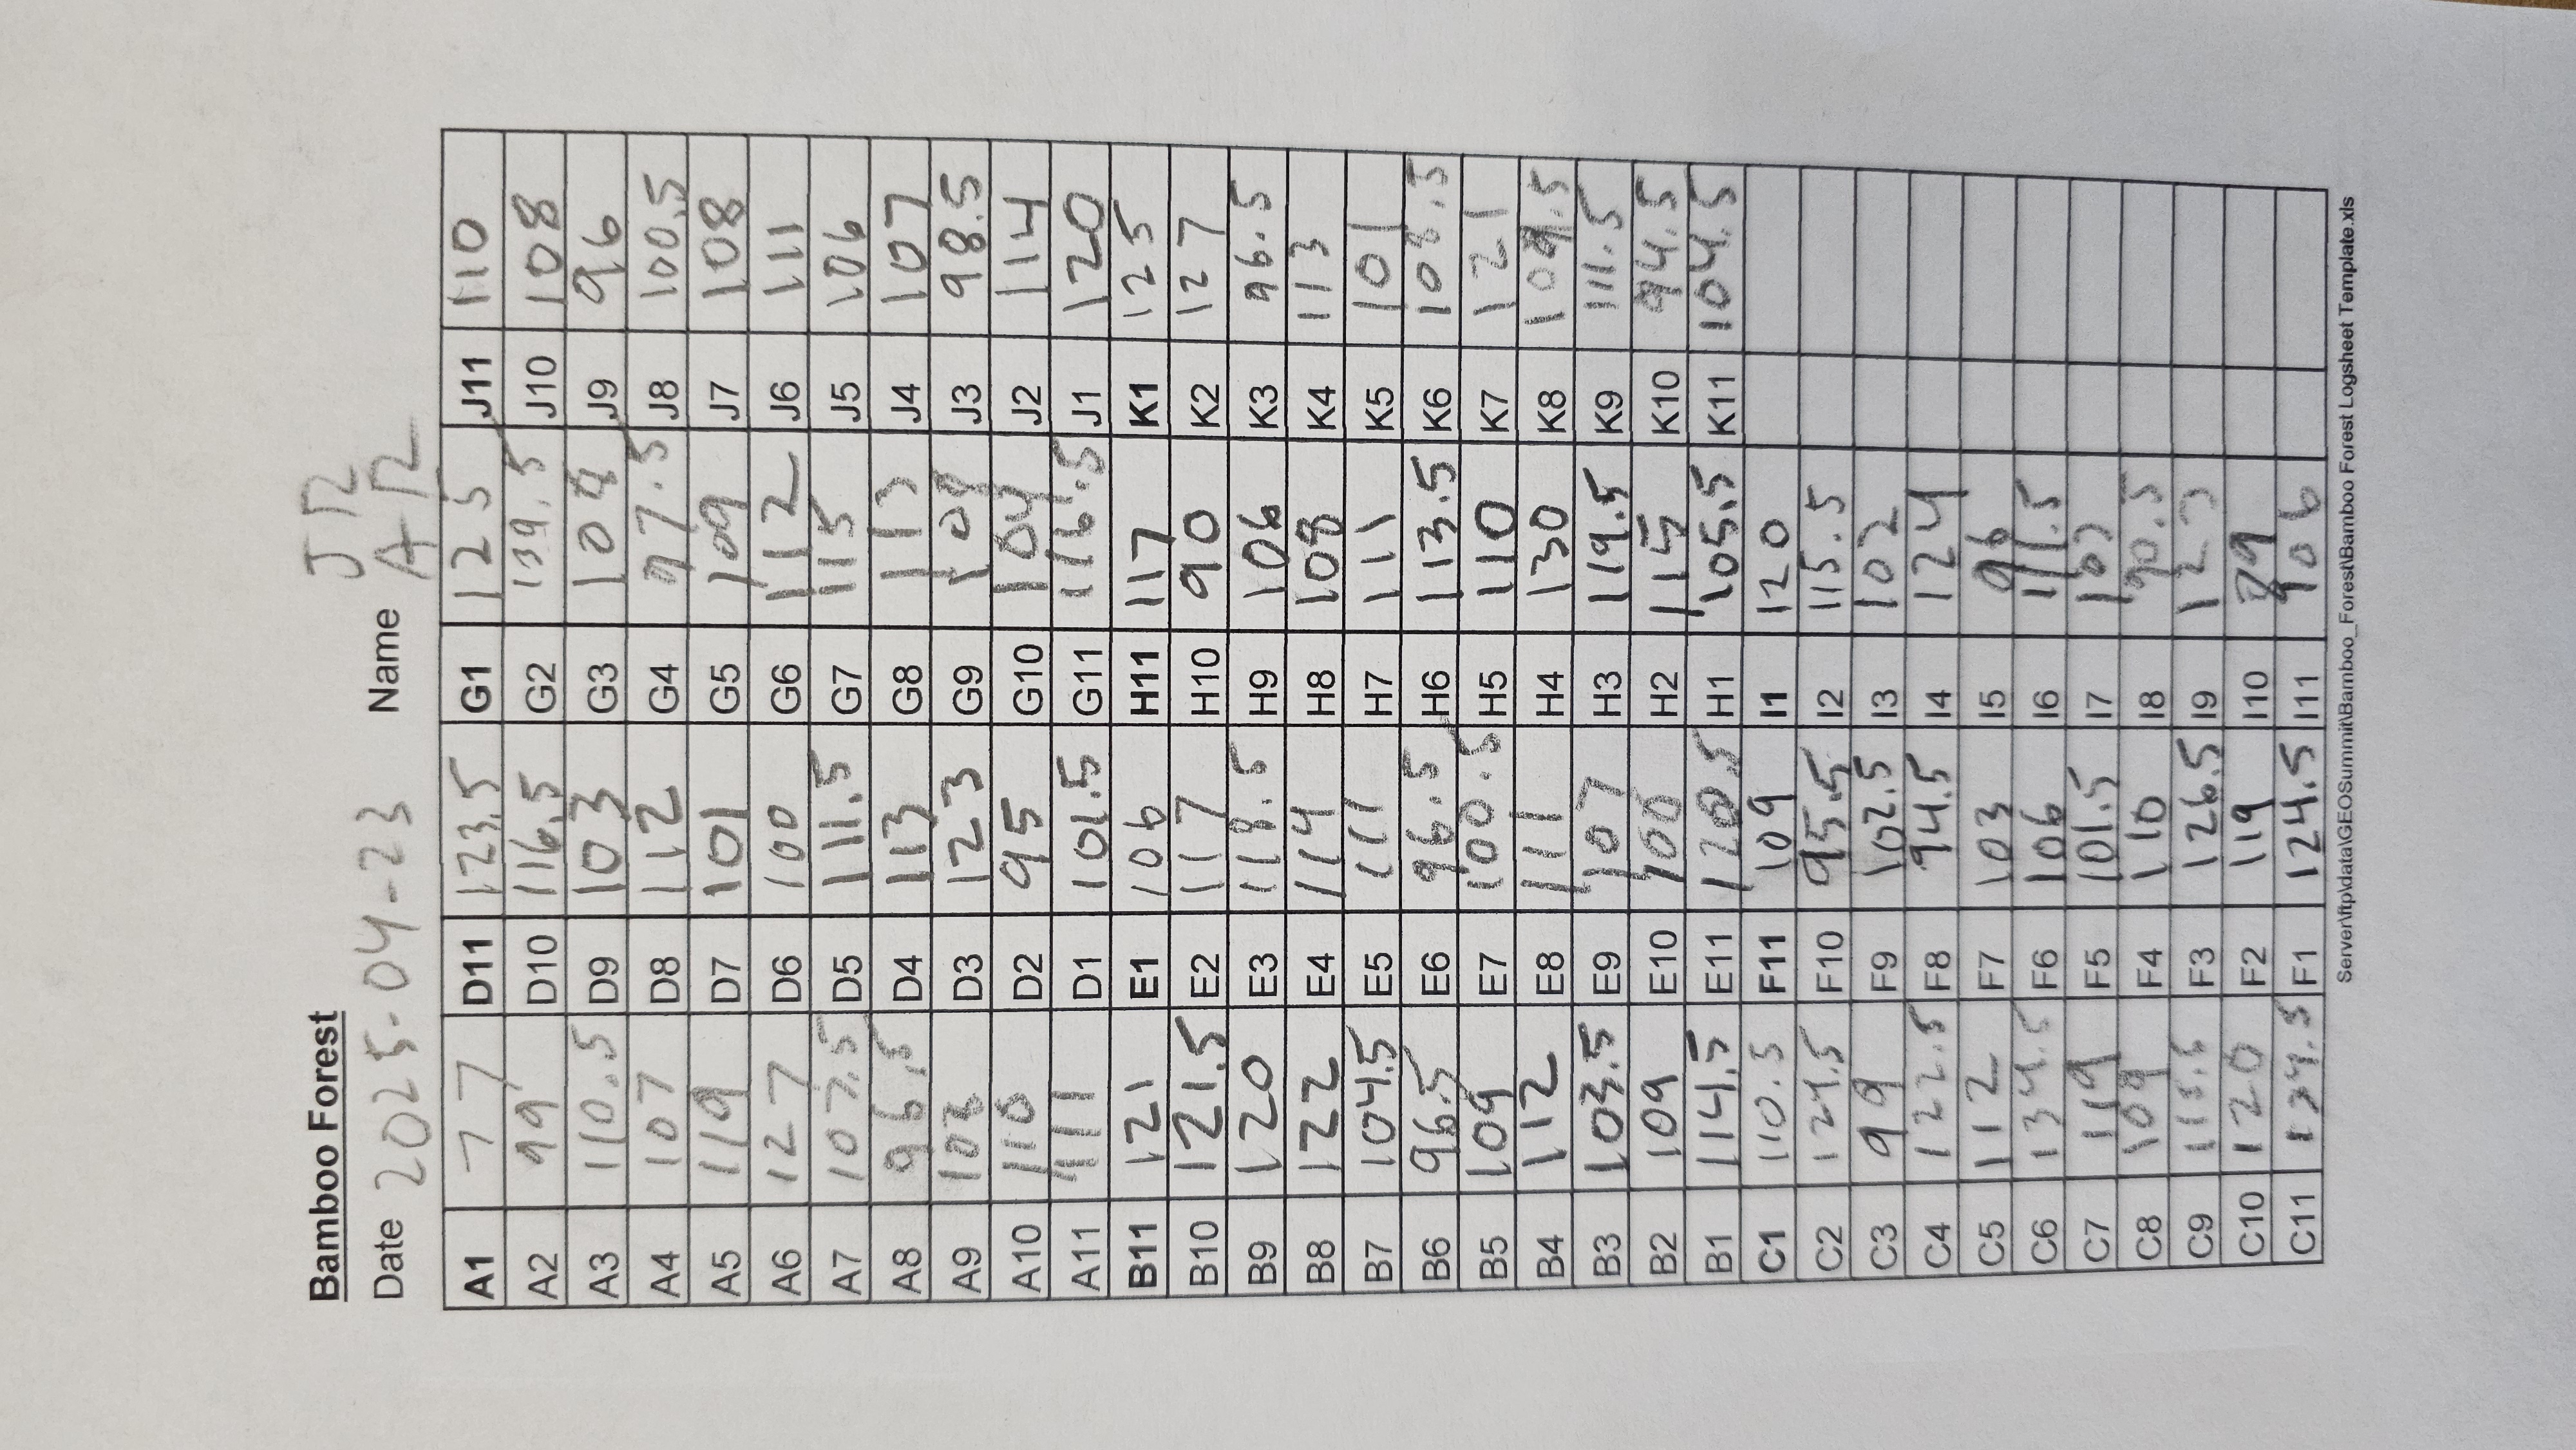 Bamboo Forest
Date 2025-04-23 Name JR AR
A1 77 D11 123.5 G1 125 J11 110
A2 99 D10 116.5 G2 139.5 J10 108
A3 110.5 D9 103 G3 104 J9 96
A4 107 D8 112 G4 97.5 J8 100.5
A5 119 D7 101 G5 109 J7 108
A6 127 D6 100 G6 112 J6 111
A7 107.5 D5 111.5 G7 115 J5 106
A8 96.5 D4 113 G8 113 J4 107
A9 D3 123 G9 J3 98.5
A10 110 D2 95 G10 104 J2 114
A11 111 D1 101.5 G11 116.5 J1 120
B11 121 E1 106 H11 117 K1 125
B10 121.5 E2 117 H10 90 K2 127
B9 120 E3 118.5 H9 106 K3 96.5
B8 122 E4 114 H8 108 K4 113
B7 104.5 E5 111 H7 111 K5 101
B6 96.5 E6 96.5 H6 113.5 K6 108.5
B5 109 E7 100.5 H5 110 K7 121
B4 112 E8 111 H4 130 K8 109.5
B3 103.5 E9 107 H3 119.5 K9 111.5
B2 109 E10 H2 115 K10 94.5
B1 114.5 E11 120.5 H1 105.5 K11 104.5
C1 110.5 F11 109 I1 120
C2 124.5 F10 95.5 I2 115.5
C3 99 F9 102.5 I3 102
C4 122.5 F8 94.5 I4 124
C5 112 F7 103 I5 96
C6 134.5 F6 106 I6 111.5
C7 119 F5 101.5 I7
C8 109 F4 110 I8 90.5
C9 F3 126.5 I9
C10 120 F2 119 I10 89
C11 F1 124.5 I11 106
Server\ftp\data\GEOSummit\Bamboo_Forest\Bamboo Forest Logsheet Template.xls